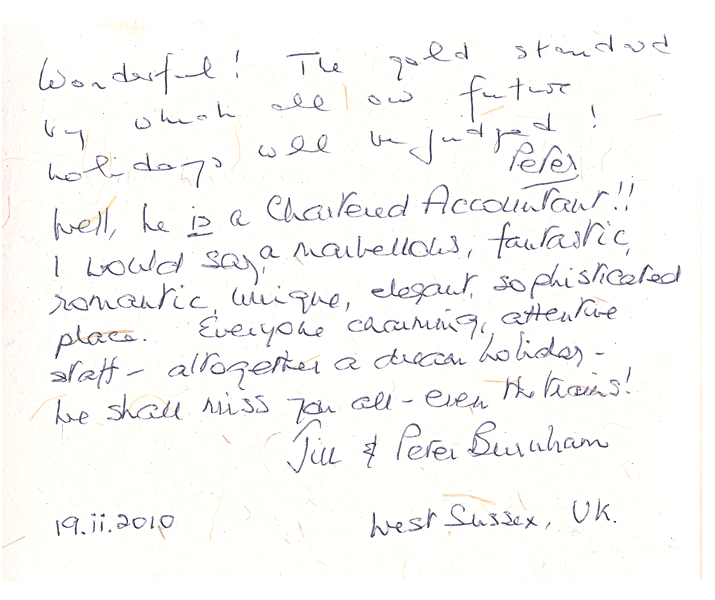 Wonderful! The gold standard
by which all our future
holidays will be judged!
Peter
Well, he is a Chartered Accountant!!
I would say, a marvellous, fantastic,
romantic, unique, elegant, sophisticated
place. Everyone charming, attentive
staff - altogether a dream holiday -
We shall miss you all - even the trains!
Jill & Peter Burnham
19.ii.2010
West Sussex, UK.